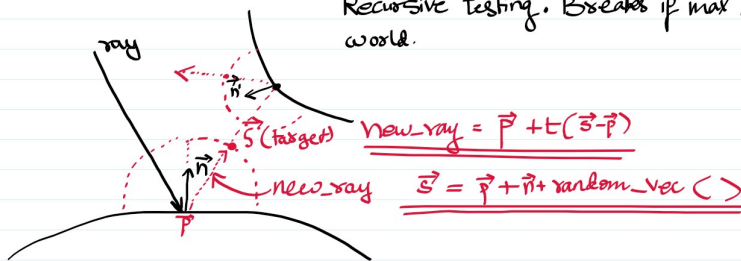 Recursive testing. Breaks if max
world.
ray
n
S (target)
new_ray = P + t(s-p)
n
new_ray
s = p + n + random_vec ( )
P